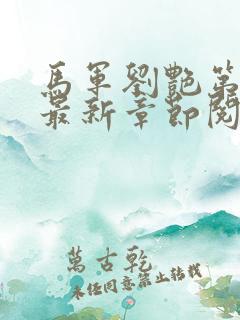 馬軍劉艷第
最新章節閱
萬古乾
未經同意禁止轉載